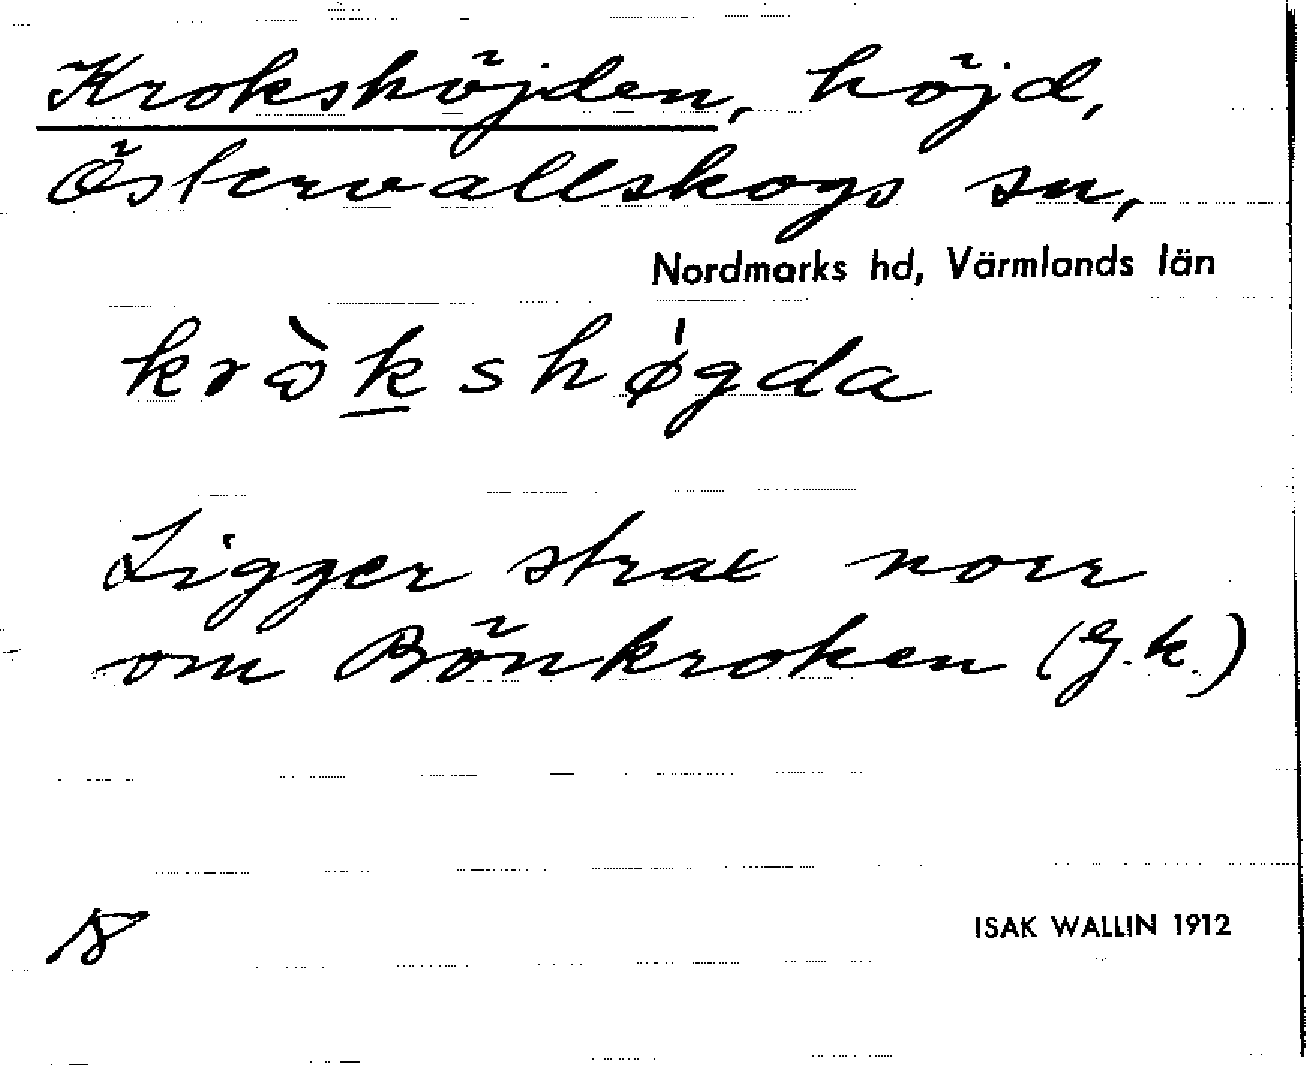 Krokshöjden, höjd,
Östervallskogs sn,
Nordmarks hd, Värmlands län
kròkshøgda
Ligger strax norr
om Bönkroken (g.k.)
ISAK WALLIN 1912